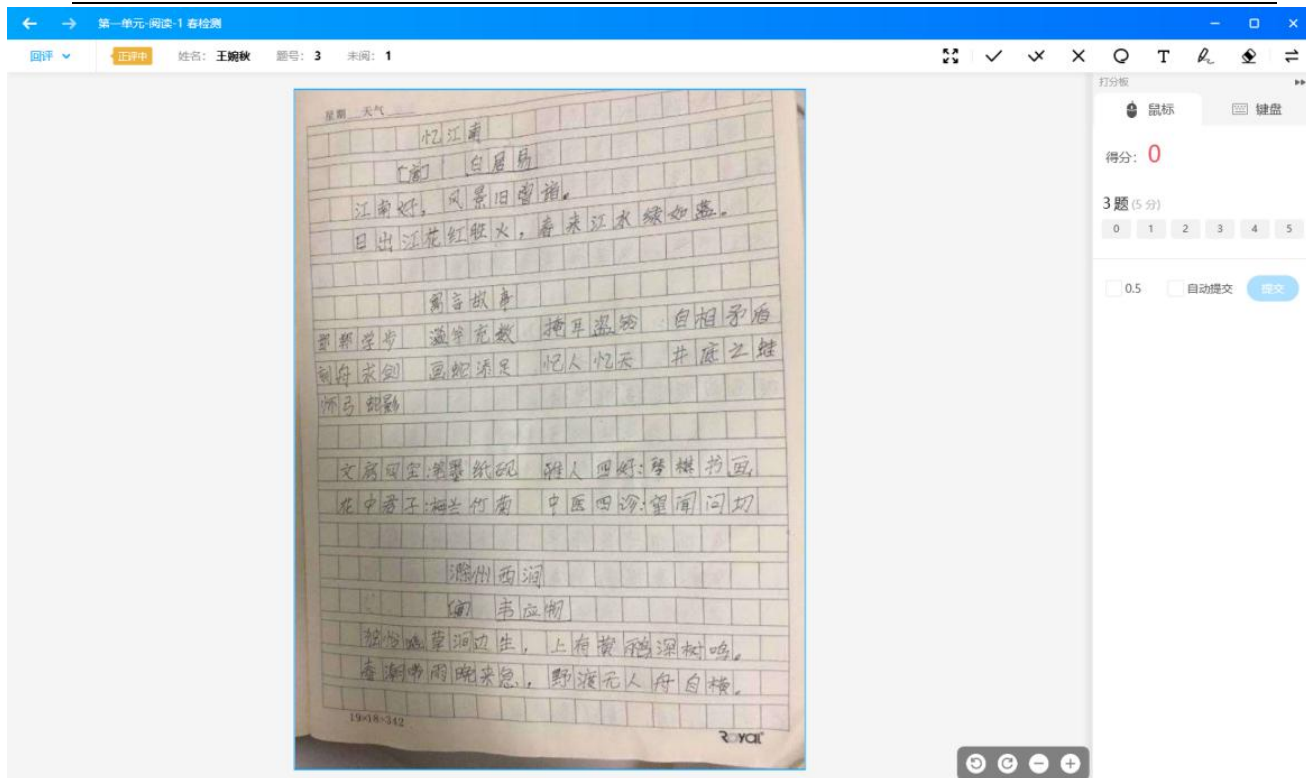 第一单元-阅读-1 春检测
回评
正评中
姓名: 王婉秋
题号: 3
未阅: 1
T
打分板
鼠标
键盘
得分: 0
3题 (5 分)
0 1 2 3 4 5
0.5
自动提交
提交
星期 天气
忆江南
[唐] 白居易
江南好，风景旧曾谙。
日出江花红胜火，春来江水绿如蓝。
寓言故事
邯郸学步 滥竽充数 掩耳盗铃 自相矛盾
刻舟求剑 画蛇添足 忆人忆天 井底之蛙
怀弓蛇影
文房四宝:笔墨纸砚 雅人四好:琴棋书画
花中君子:梅兰竹菊 中医四诊:望闻问切
滁州西涧
[唐] 韦应物
独怜幽草涧边生，上有黄鹂深树鸣。
春潮带雨晚来急，野渡无人舟自横。
19×18=342
ROYAL